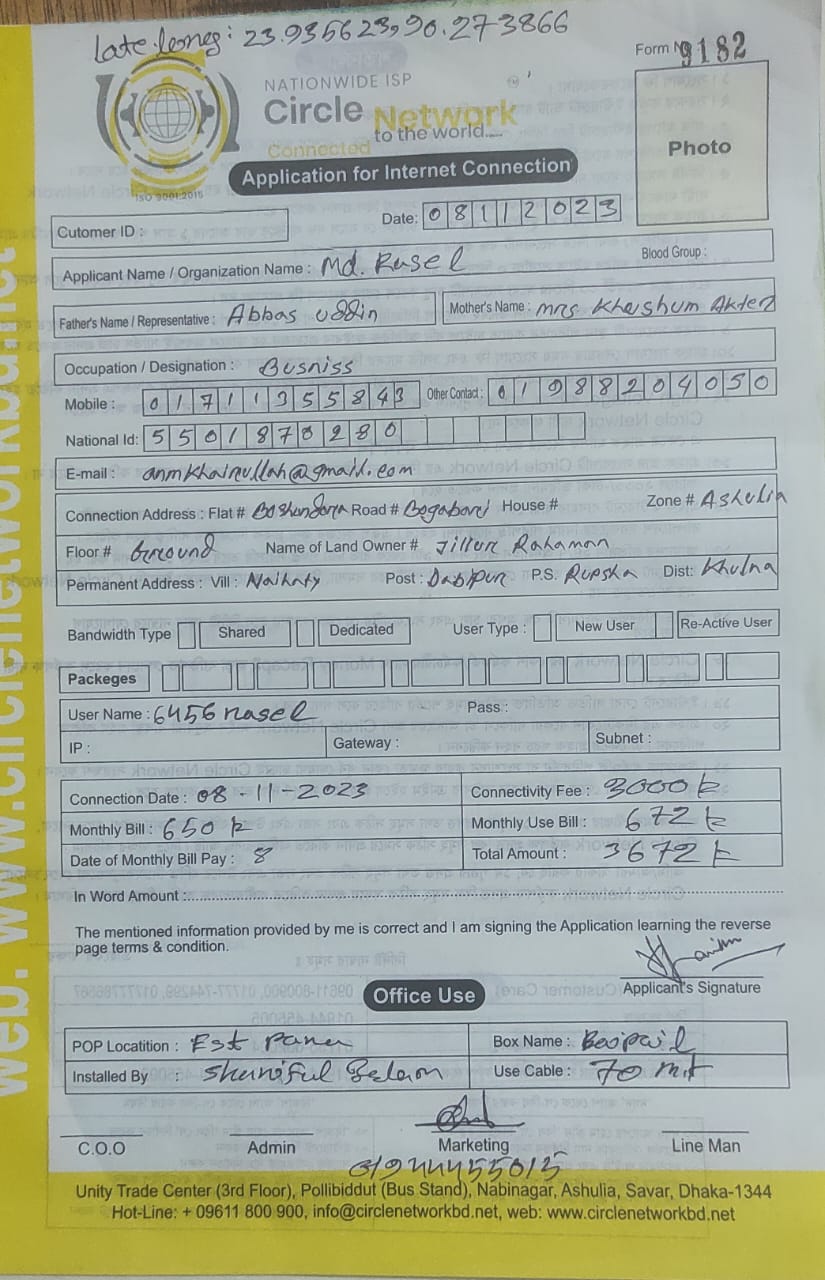 Late long: 23.935623,90.273866
Form No 9182
NATIONWIDE ISP
Circle Network
to the world....
Connected
ISO 9001:2015
Photo
Application for Internet Connection
Date: 08112023
Cutomer ID :
Blood Group :
Applicant Name / Organization Name : Md. Rasel
Father's Name / Representative : Abbas Uddin
Mother's Name : Mrs Khashum Akter
Occupation / Designation : Busniss
Mobile : 01711355843 Other Contact : 01988204050
National Id: 5501870280
E-mail : anmkhairullah@gmail.com
Connection Address : Flat # Boshundora Road # Bogabari House # Zone # Ashulia
Floor # Ground Name of Land Owner # Jillur Rahaman
Permanent Address : Vill : Naihaty Post : P.S. Rupsha Dist: Khulna
Bandwidth Type Shared Dedicated User Type : New User Re-Active User
Packeges
User Name : 6456rasel Pass :
IP : Gateway : Subnet :
Connection Date : 08-11-2023 Connectivity Fee : 3000 k
Monthly Bill : 650 k Monthly Use Bill : 672 k
Date of Monthly Bill Pay : 8 Total Amount : 3672 k
In Word Amount :
The mentioned information provided by me is correct and I am signing the Application learning the reverse
page terms & condition.
Applicant's Signature
Office Use
POP Locatition : Est Para Box Name : Baipail
Installed By : Shariful Use Cable : 70 mit
C.O.O Admin Marketing Line Man
Unity Trade Center (3rd Floor), Pollibiddut (Bus Stand), Nabinagar, Ashulia, Savar, Dhaka-1344
Hot-Line: + 09611 800 900, info@circlenetworkbd.net, web: www.circlenetworkbd.net
web: www.circlenetworkbd.net